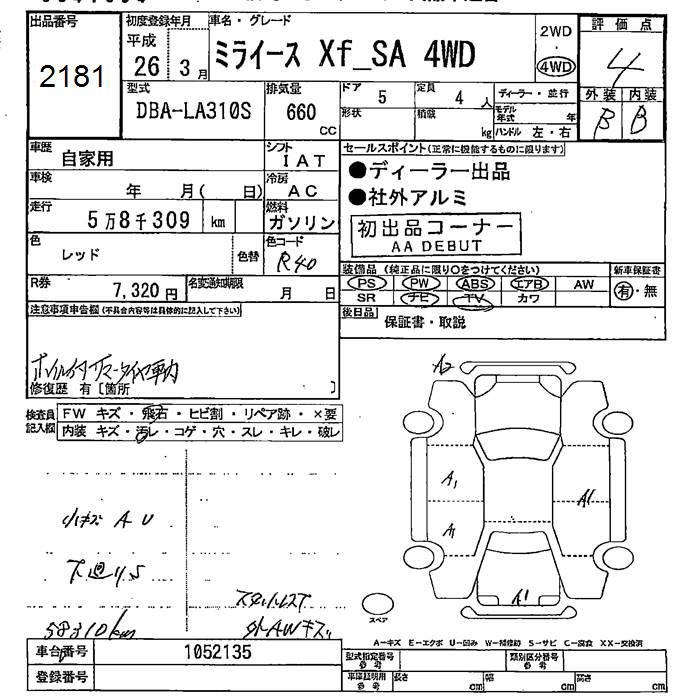 出品番号
2181
初度登録年月
平成
26年 3月
車名・グレード
ミライース Xf_SA 4WD
2WD
・
4WD
評価点
4
外装 内装
B B
型式
DBA-LA310S
排気量
660
CC
ドア 5
定員 4 人
形状
積載 kg
ディーラー・並行
モデル年式 年
ハンドル 左・右
車歴
自家用
シフト
I A T
車検
年 月( 日)
冷房
A C
走行
5万8千309 km
燃料
ガソリン
色
レッド
色替
色コード
R40
R券
7,320円
名変通知期限
月 日
セールスポイント(正常に機能するものに限ります)
●ディーラー出品
●社外アルミ
初出品コーナー
AA DEBUT
装備品(純正品に限り○をつけてください)
PS PW ABS エアB AW
SR ナビ TV カワ
新車保証書
有・無
後日品
保証書・取説
注意事項申告欄(不具合内容等は具体的に記入して下さい)
修復歴 有〔箇所 〕
検査員
記入欄
FW キズ・飛石・ヒビ割・リペア跡・×要
内装 キズ・汚レ・コゲ・穴・スレ・キレ・破レ
小キズ A U
下廻りS
58310km
スタッドレス
外AWキズ
A2
A1
A1
A1
A1
スペア
A-キズ E-エクボ U-凹み W-補修跡 S-サビ C-腐食 XX-交換済
車台番号
1052135
登録番号
型式指定番号
参考
類別区分番号
参考
車庫証明用
参考
長さ cm
幅 cm
高さ cm